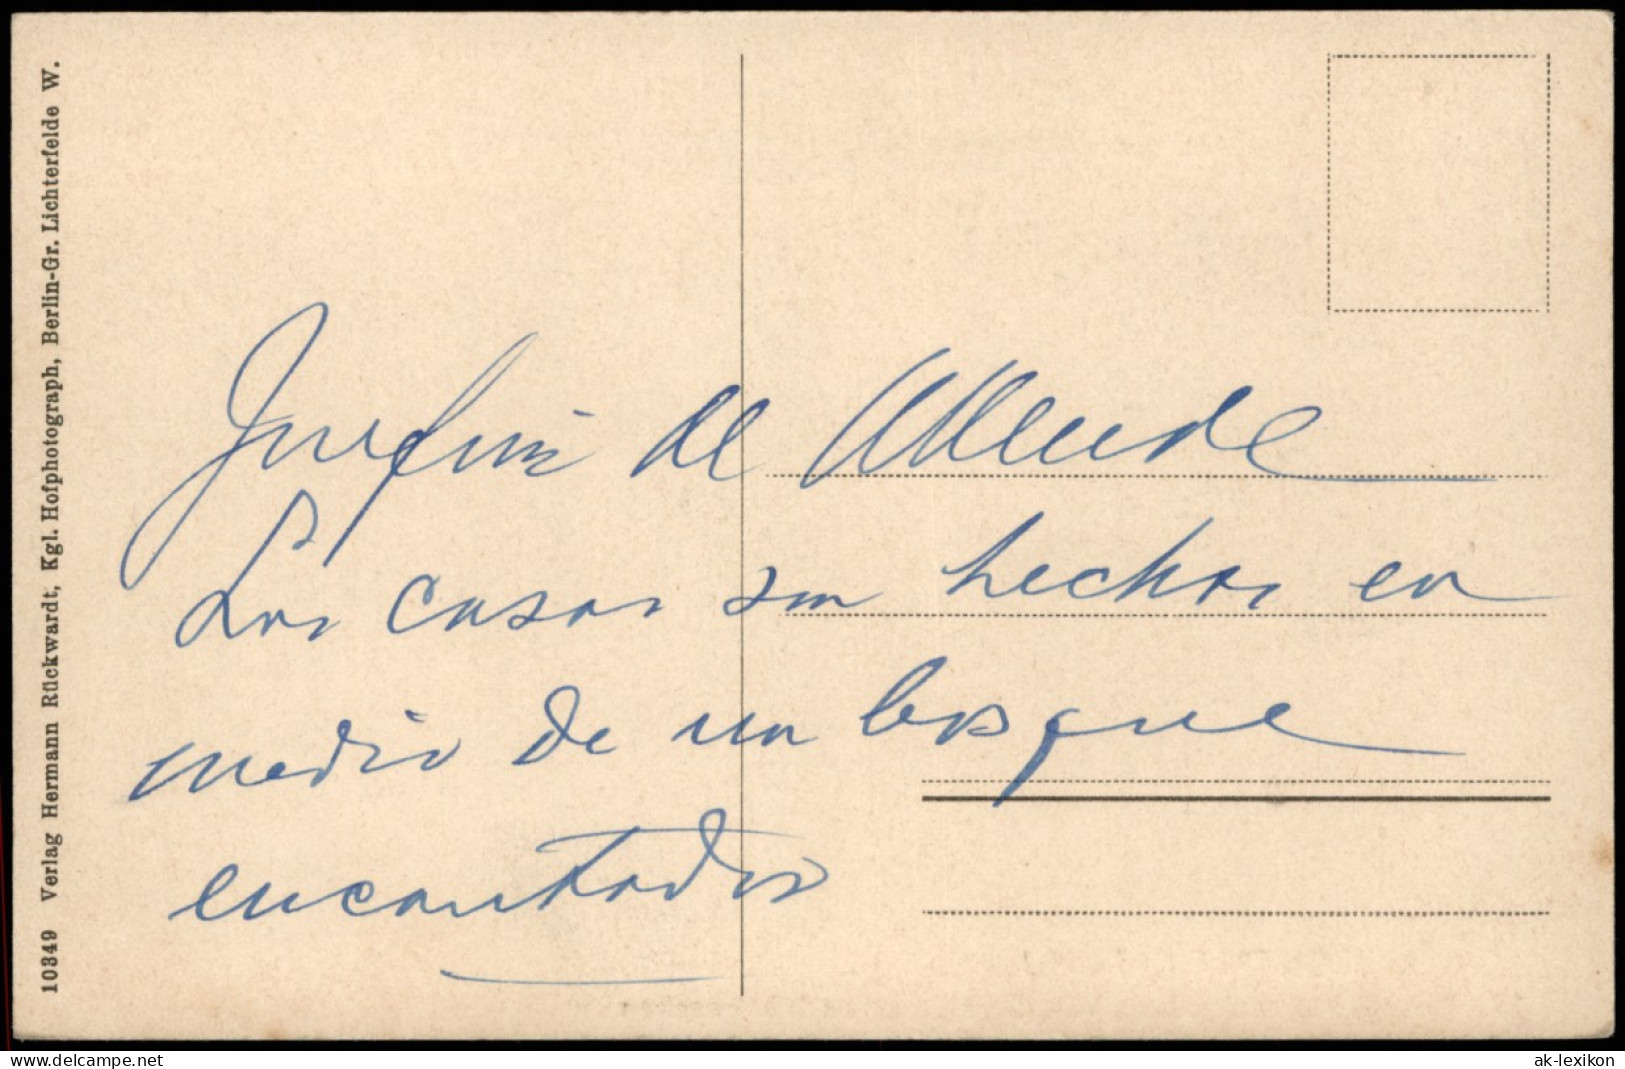 10349 Verlag Hermann Rückwardt, Kgl. Hofphotograph, Berlin-Gr. Lichterfelde W.
de Allende
Las casas son hechas en
medio de un bosque
encantador
delcampe.net
ak-lexikon